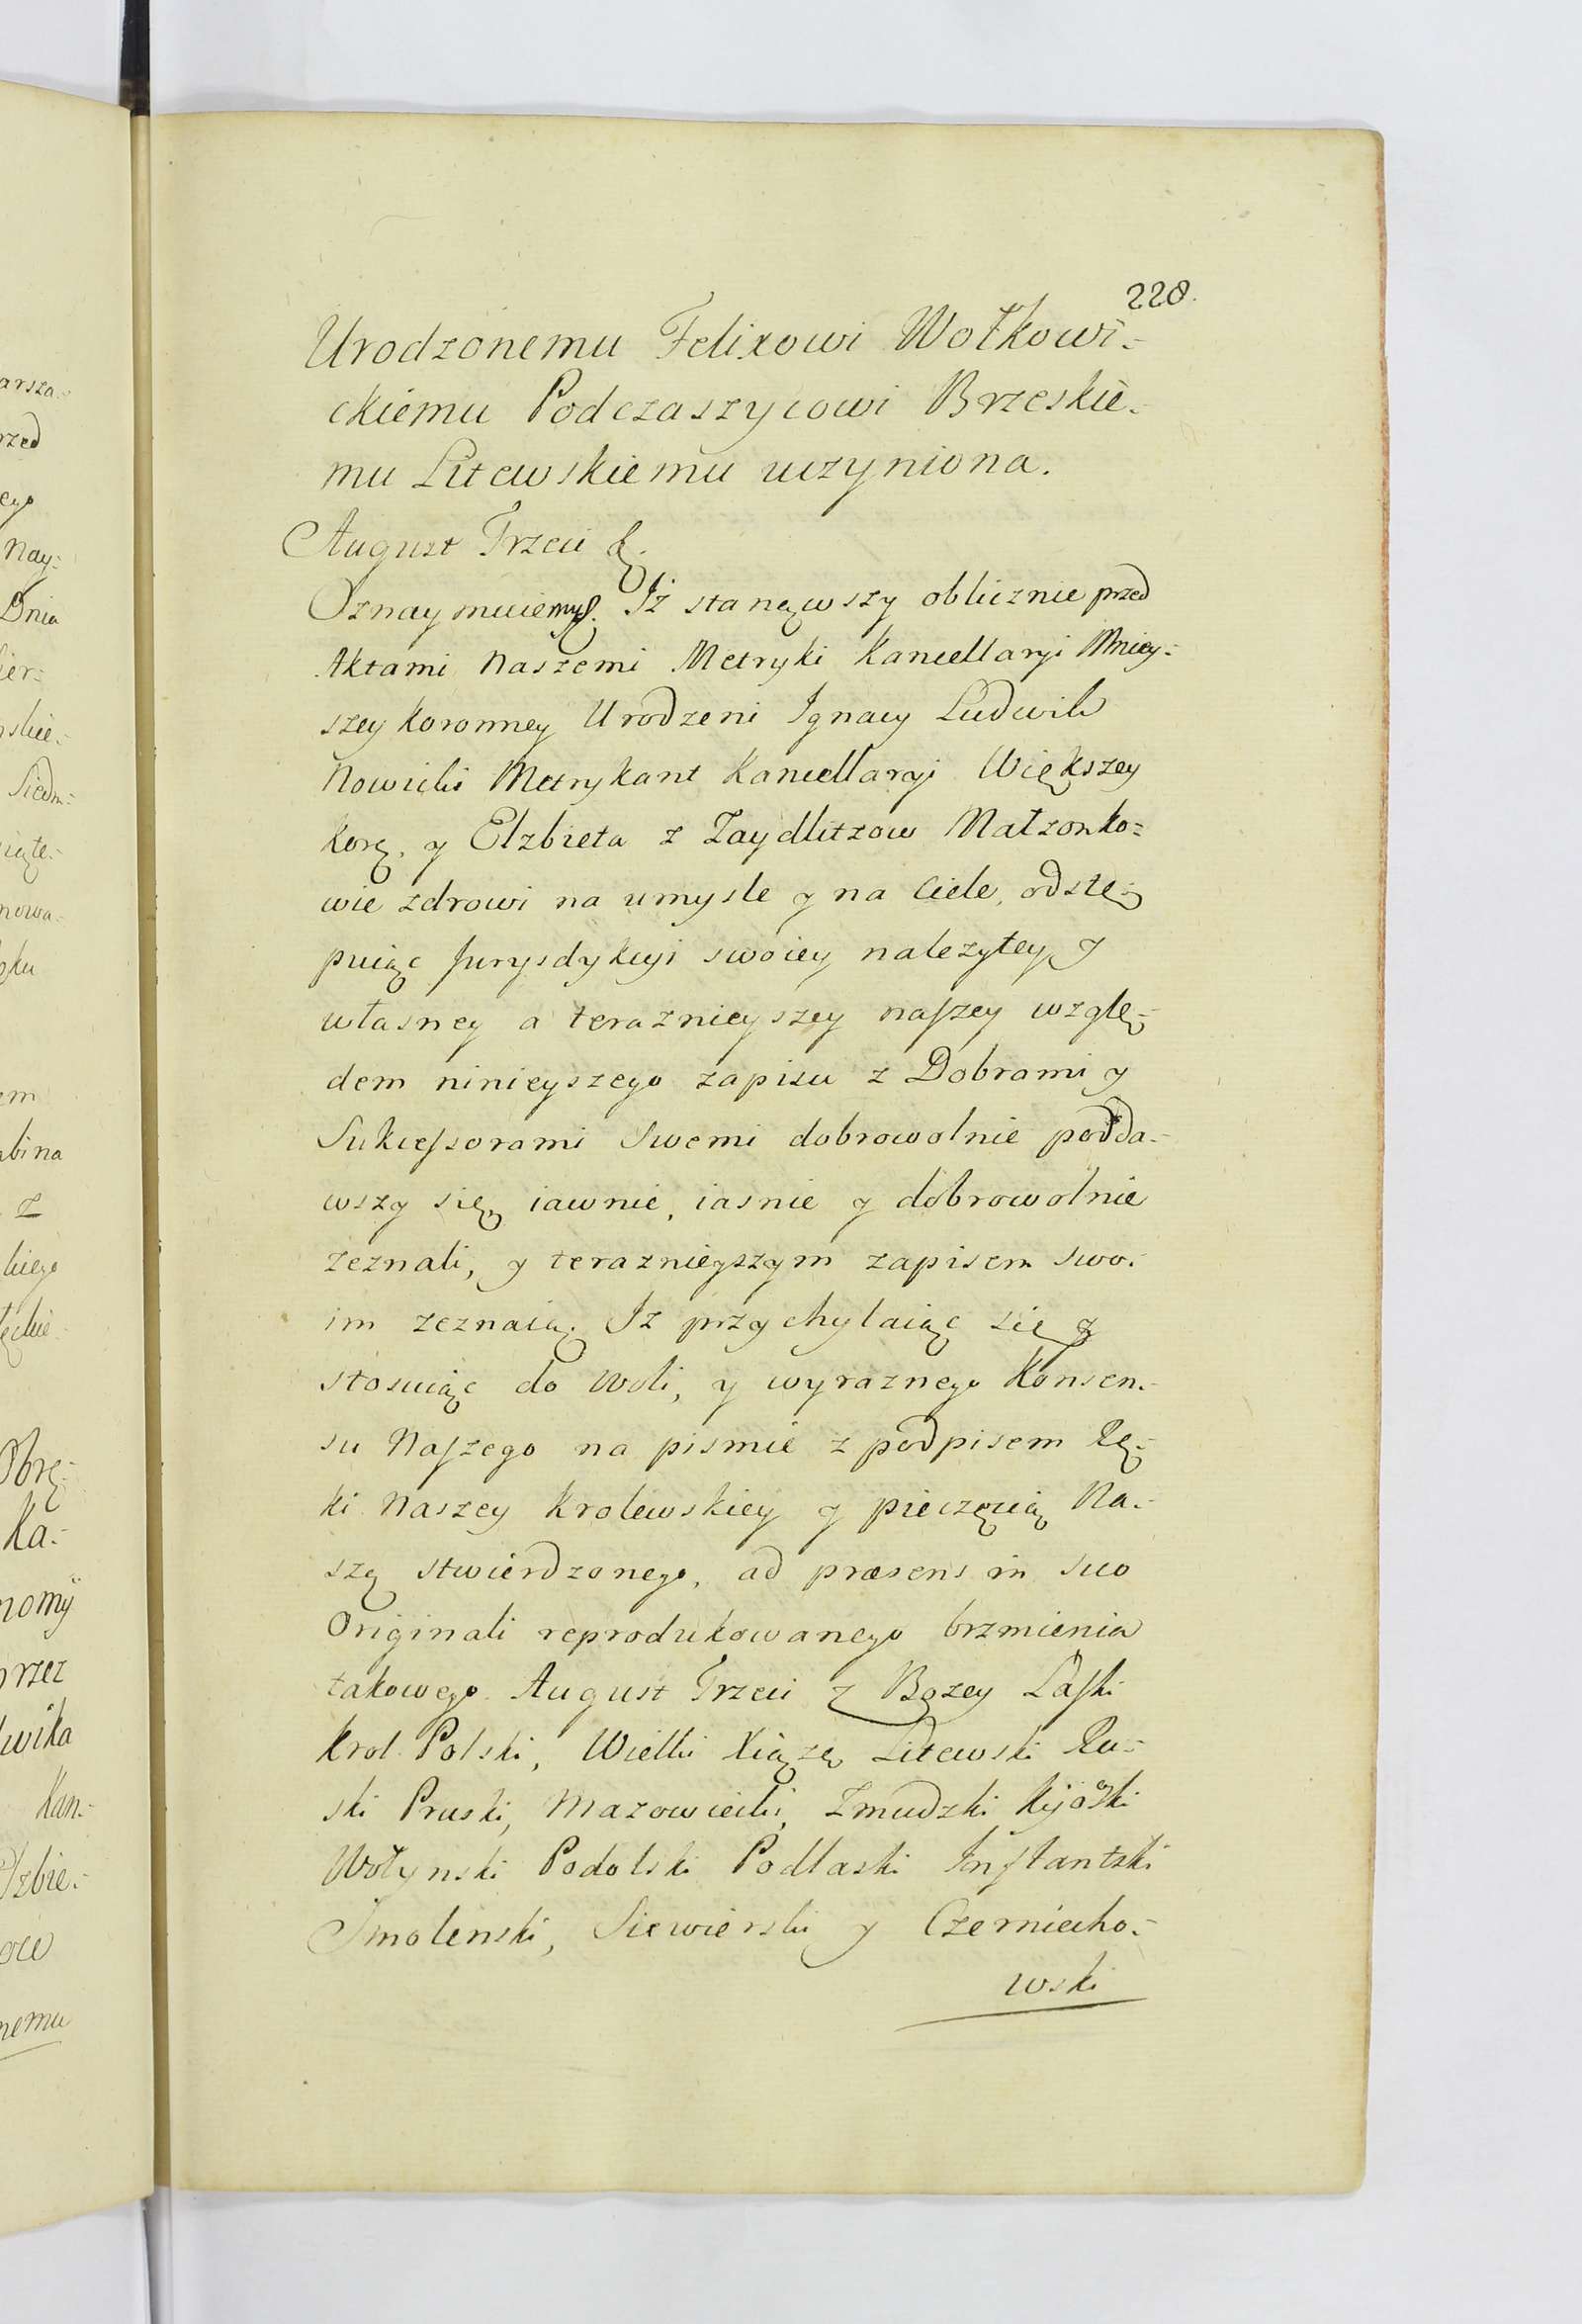 228.
Urodzonemu Felixowi Wołkowi-
ckiemu Podczaszycowi Brzeskie-
mu Litewskiemu uczyniona.
August Trzeci &.
Oznaymuiemy &. Iż stanąwszy oblicznie przed
Aktami Naszemi Metryki Kancellaryi Mniey-
szey Koronney Urodzeni Ignacy Ludwik
Nowicki Metrykant Kancellaryi Większey
Korę. y Elzbieta z Zaydlitzow Małzonko-
wie zdrowi na umysle y na Ciele, odstę-
puiąc Jurysdykcyi swoiey nalezytey y
własney a teraznieyszey naszey wzglę-
dem ninieyszego zapisu z Dobrami y
Sukcessorami Swemi dobrowolnie podda-
wszy się, iawnie, iasnie y dobrowolnie
zeznali, y teraznieyszym zapisem swo-
im zeznaią. Iz przychylaiąc się y
stosuiąc do Woli, y wyraznego Konsen-
su Naszego na pismie z podpisem Rę-
ki Naszey Krolewskiey y pieczęcią Na-
szą stwierdzonego, ad præsens in suo
Originali reprodukowanego brzmienia
takowego. August Trzeci z Bozey Łaski
Krol Polski, Wielki Xiąże Litewski Ru-
ski Pruski, Mazowiecki, Zmudzki Kijoski
Wołynski Podolski Podlaski Inflantski
Smolenski, Siewierski y Czerniecho-
wski
arsza-
rzed
ego
Nay-
Dnia
ier-
skie-
Siedm-
nowa-
oku
em
abina
z
kiego
Obrę-
Ka-
nomij
przez
dwika
Kan-
lzbie-
nemu